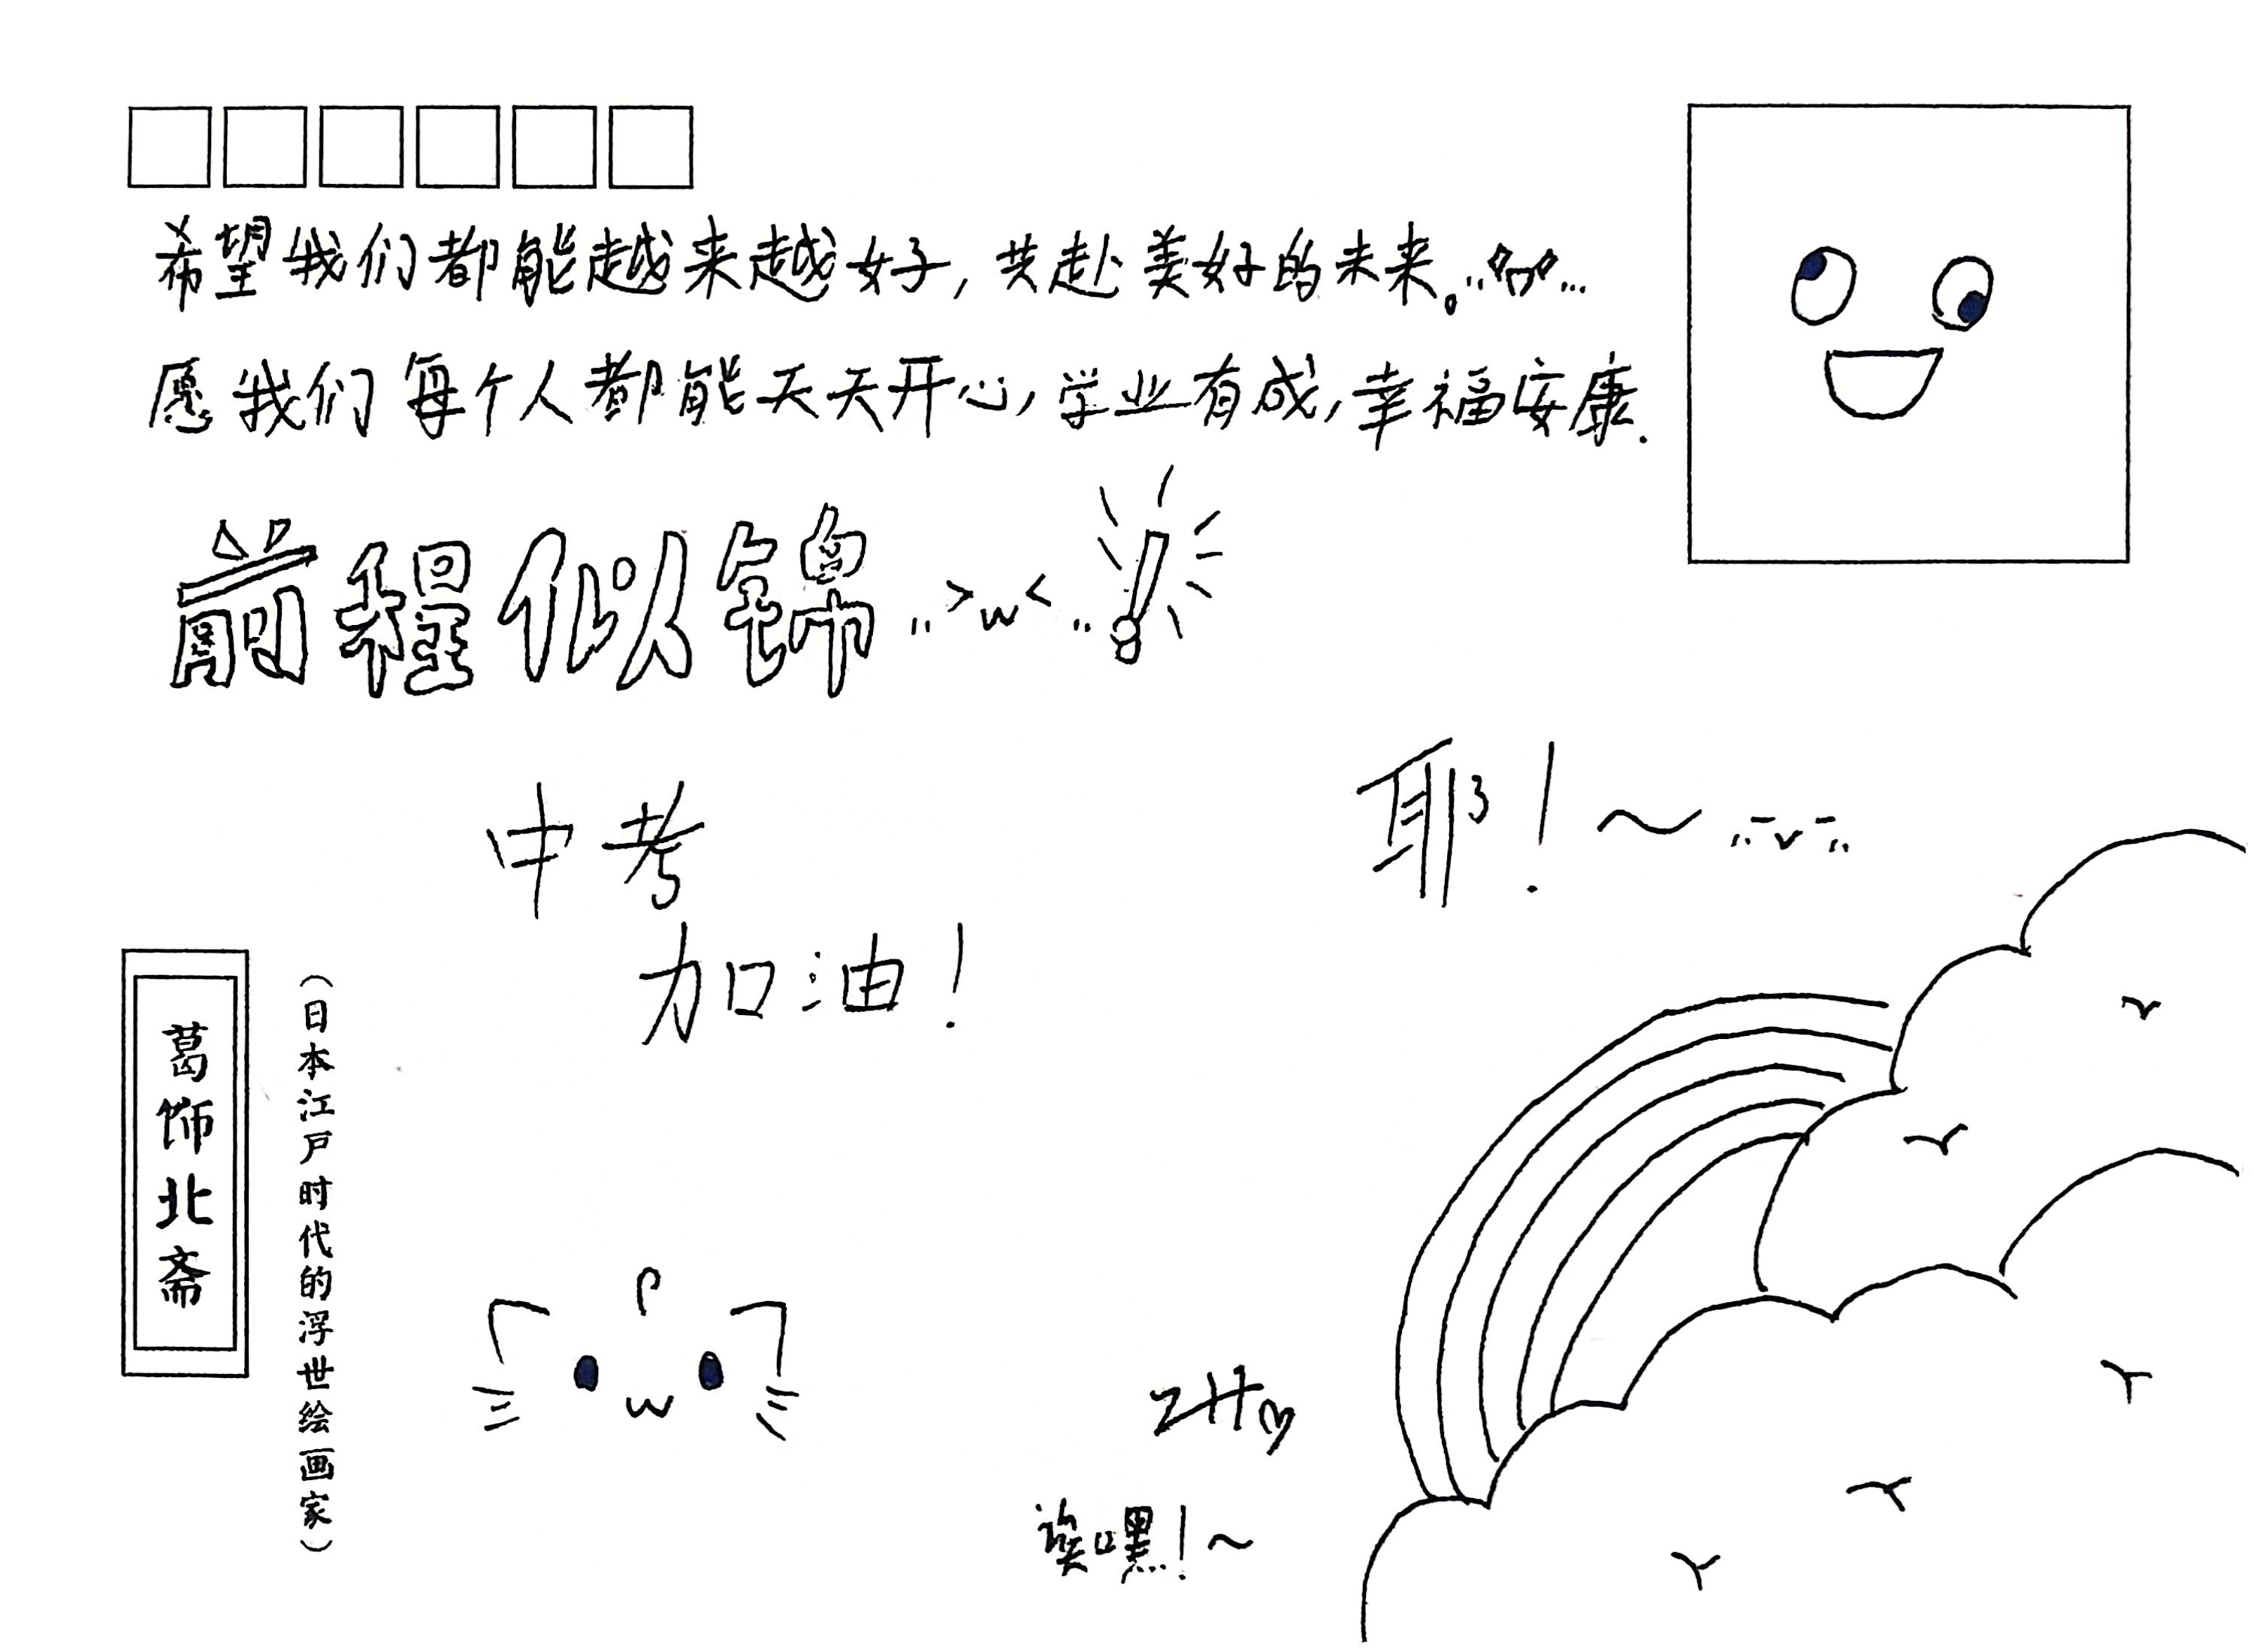 希望我们都能越来越好，共赴美好的未来。
愿我们每个人都能天天开心，学业有成，幸福安康.
前程似锦 >w< !
中考
加油！
耶！~
葛饰北斋
（日本江户时代的浮世绘画家）
嘿！~